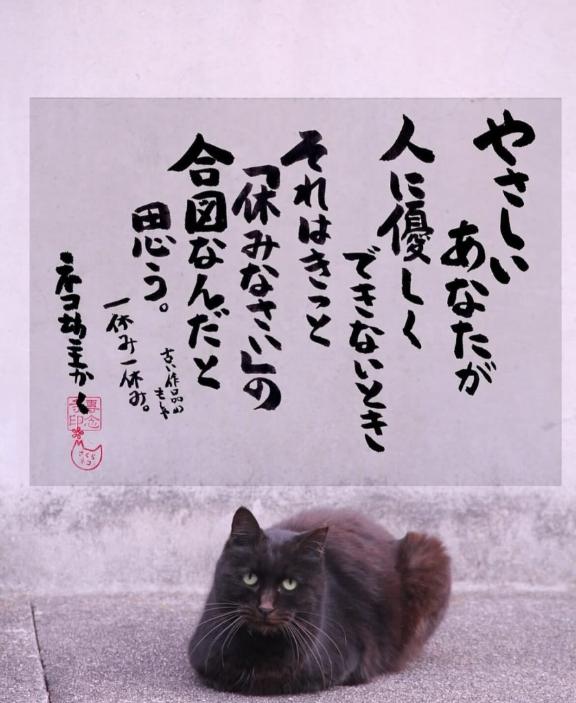 やさしい
あなたが
人に優しく
できないとき
それはきっと
「休みなさい」の
合図なんだと
思う。
古い作品の
一休み一休み。
ネコ坊主かく
専念
寺印
さくら
ネコ